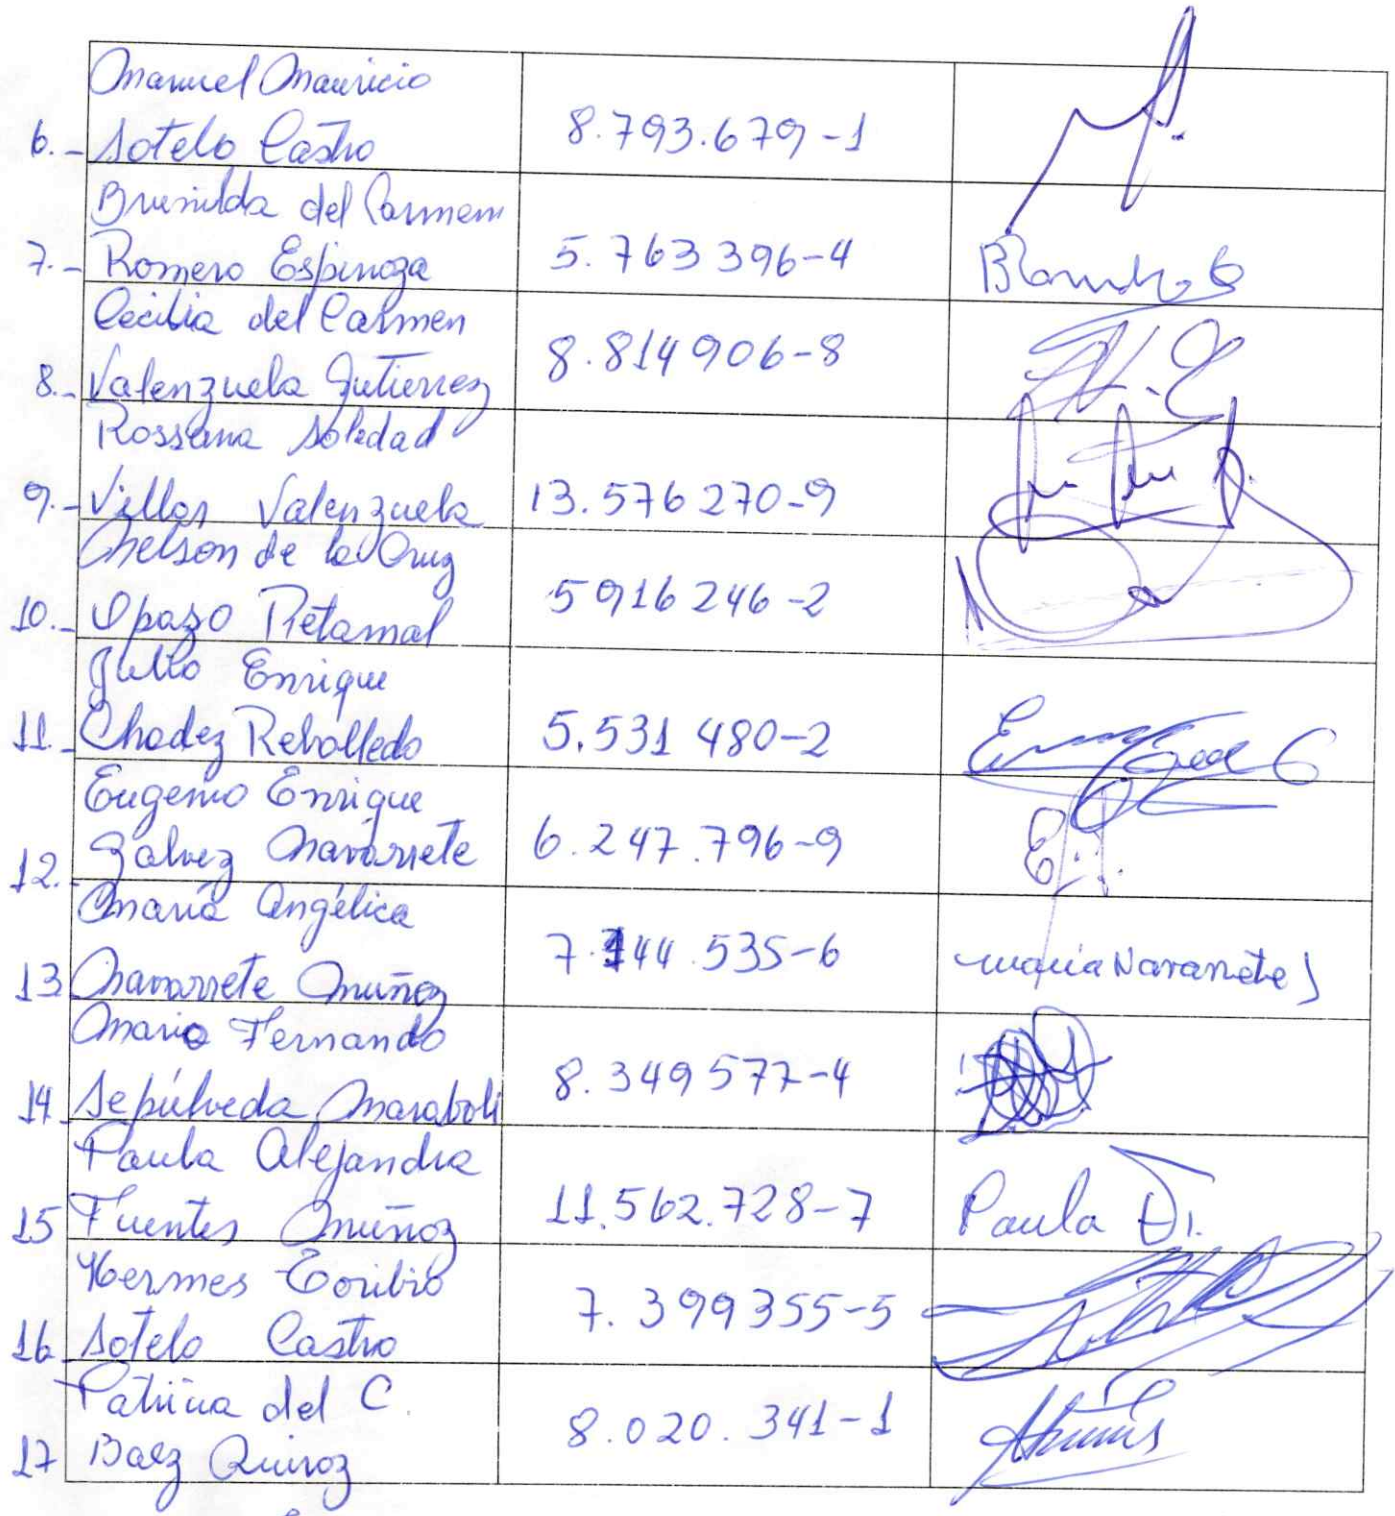 Manuel Mauricio
6.- Sotelo Castro 8.793.679-1
Brunilda del Carmen
7.- Romero Espinoza 5.763 396-4
Cecilia del Carmen
8.- Valenzuela Gutierrez 8.814 906-8
Rossana Soledad
9.- Villar Valenzuela 13.576 270-9
Nelson de la Cruz
10.- Opazo Retamal 5 916 246-2
Julio Enrique
11.- Chadez Rebolledo 5.531 480-2
Eugenio Enrique
12.- Galvez Navarrete 6.247.796-9
María Angélica
13 Navarrete Muñoz 7. 44.535-6 maria Navarrete
Mario Fernando
14.- Sepúlveda Maraboli 8.349 577-4
Paula Alejandra
15 Fuentes Muñoz 11.562.728-7 Paula
Hermes Toribio
16 Sotelo Castro 7.399355-5
Patricia del C.
17 Baez Quiroz 8.020.341-1